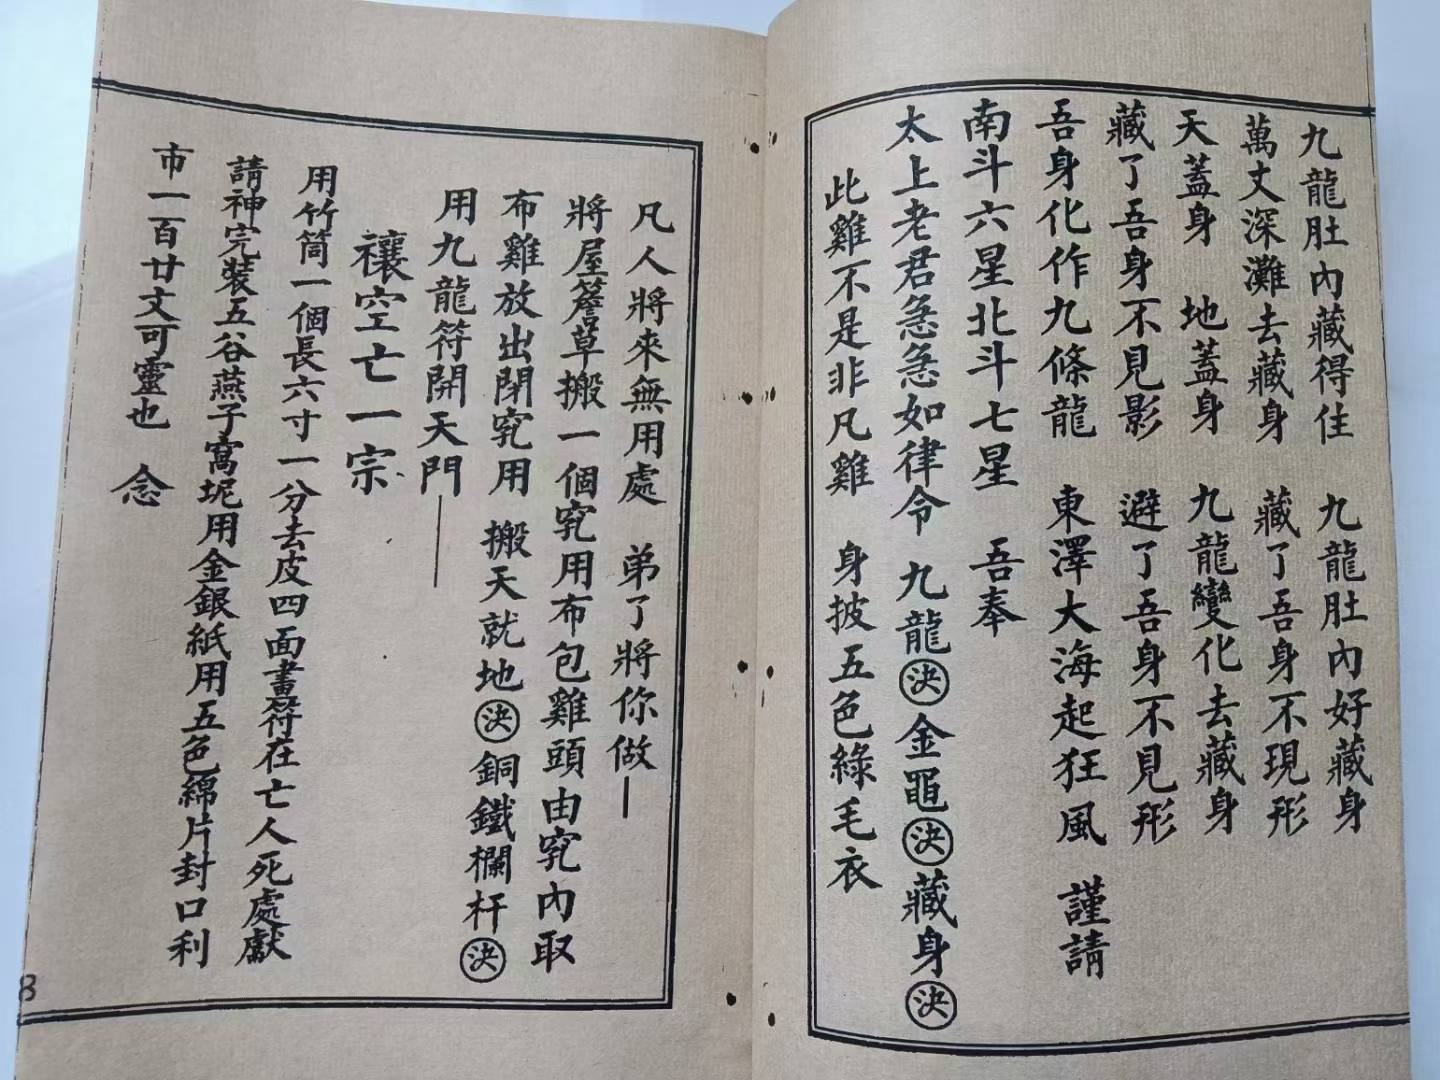 九龍肚內藏得住　九龍肚內好藏身
萬丈深灘去藏身　藏了吾身不現形
天蓋身　地蓋身　九龍變化去藏身
藏了吾身不見影　避了吾身不見形
吾身化作九條龍　東澤大海起狂風　謹請
南斗六星北斗七星　吾奉
太上老君急急如律令　九龍決金黽決藏身決
此雞不是非凡雞　身披五色綠毛衣
凡人將來無用處　弟了將你做—
將屋簷草搬一個究用布包雞頭由究內取
布雞放出閉究用　搬天就地決銅鐵欄杆決
用九龍符開天門—
禳空亡一宗
用竹筒一個長六寸一分去皮四面畫符在亡人死處獻
請神完裝五谷燕子窩坭用金銀紙用五色綿片封口利
市一百廿文可靈也　念
8